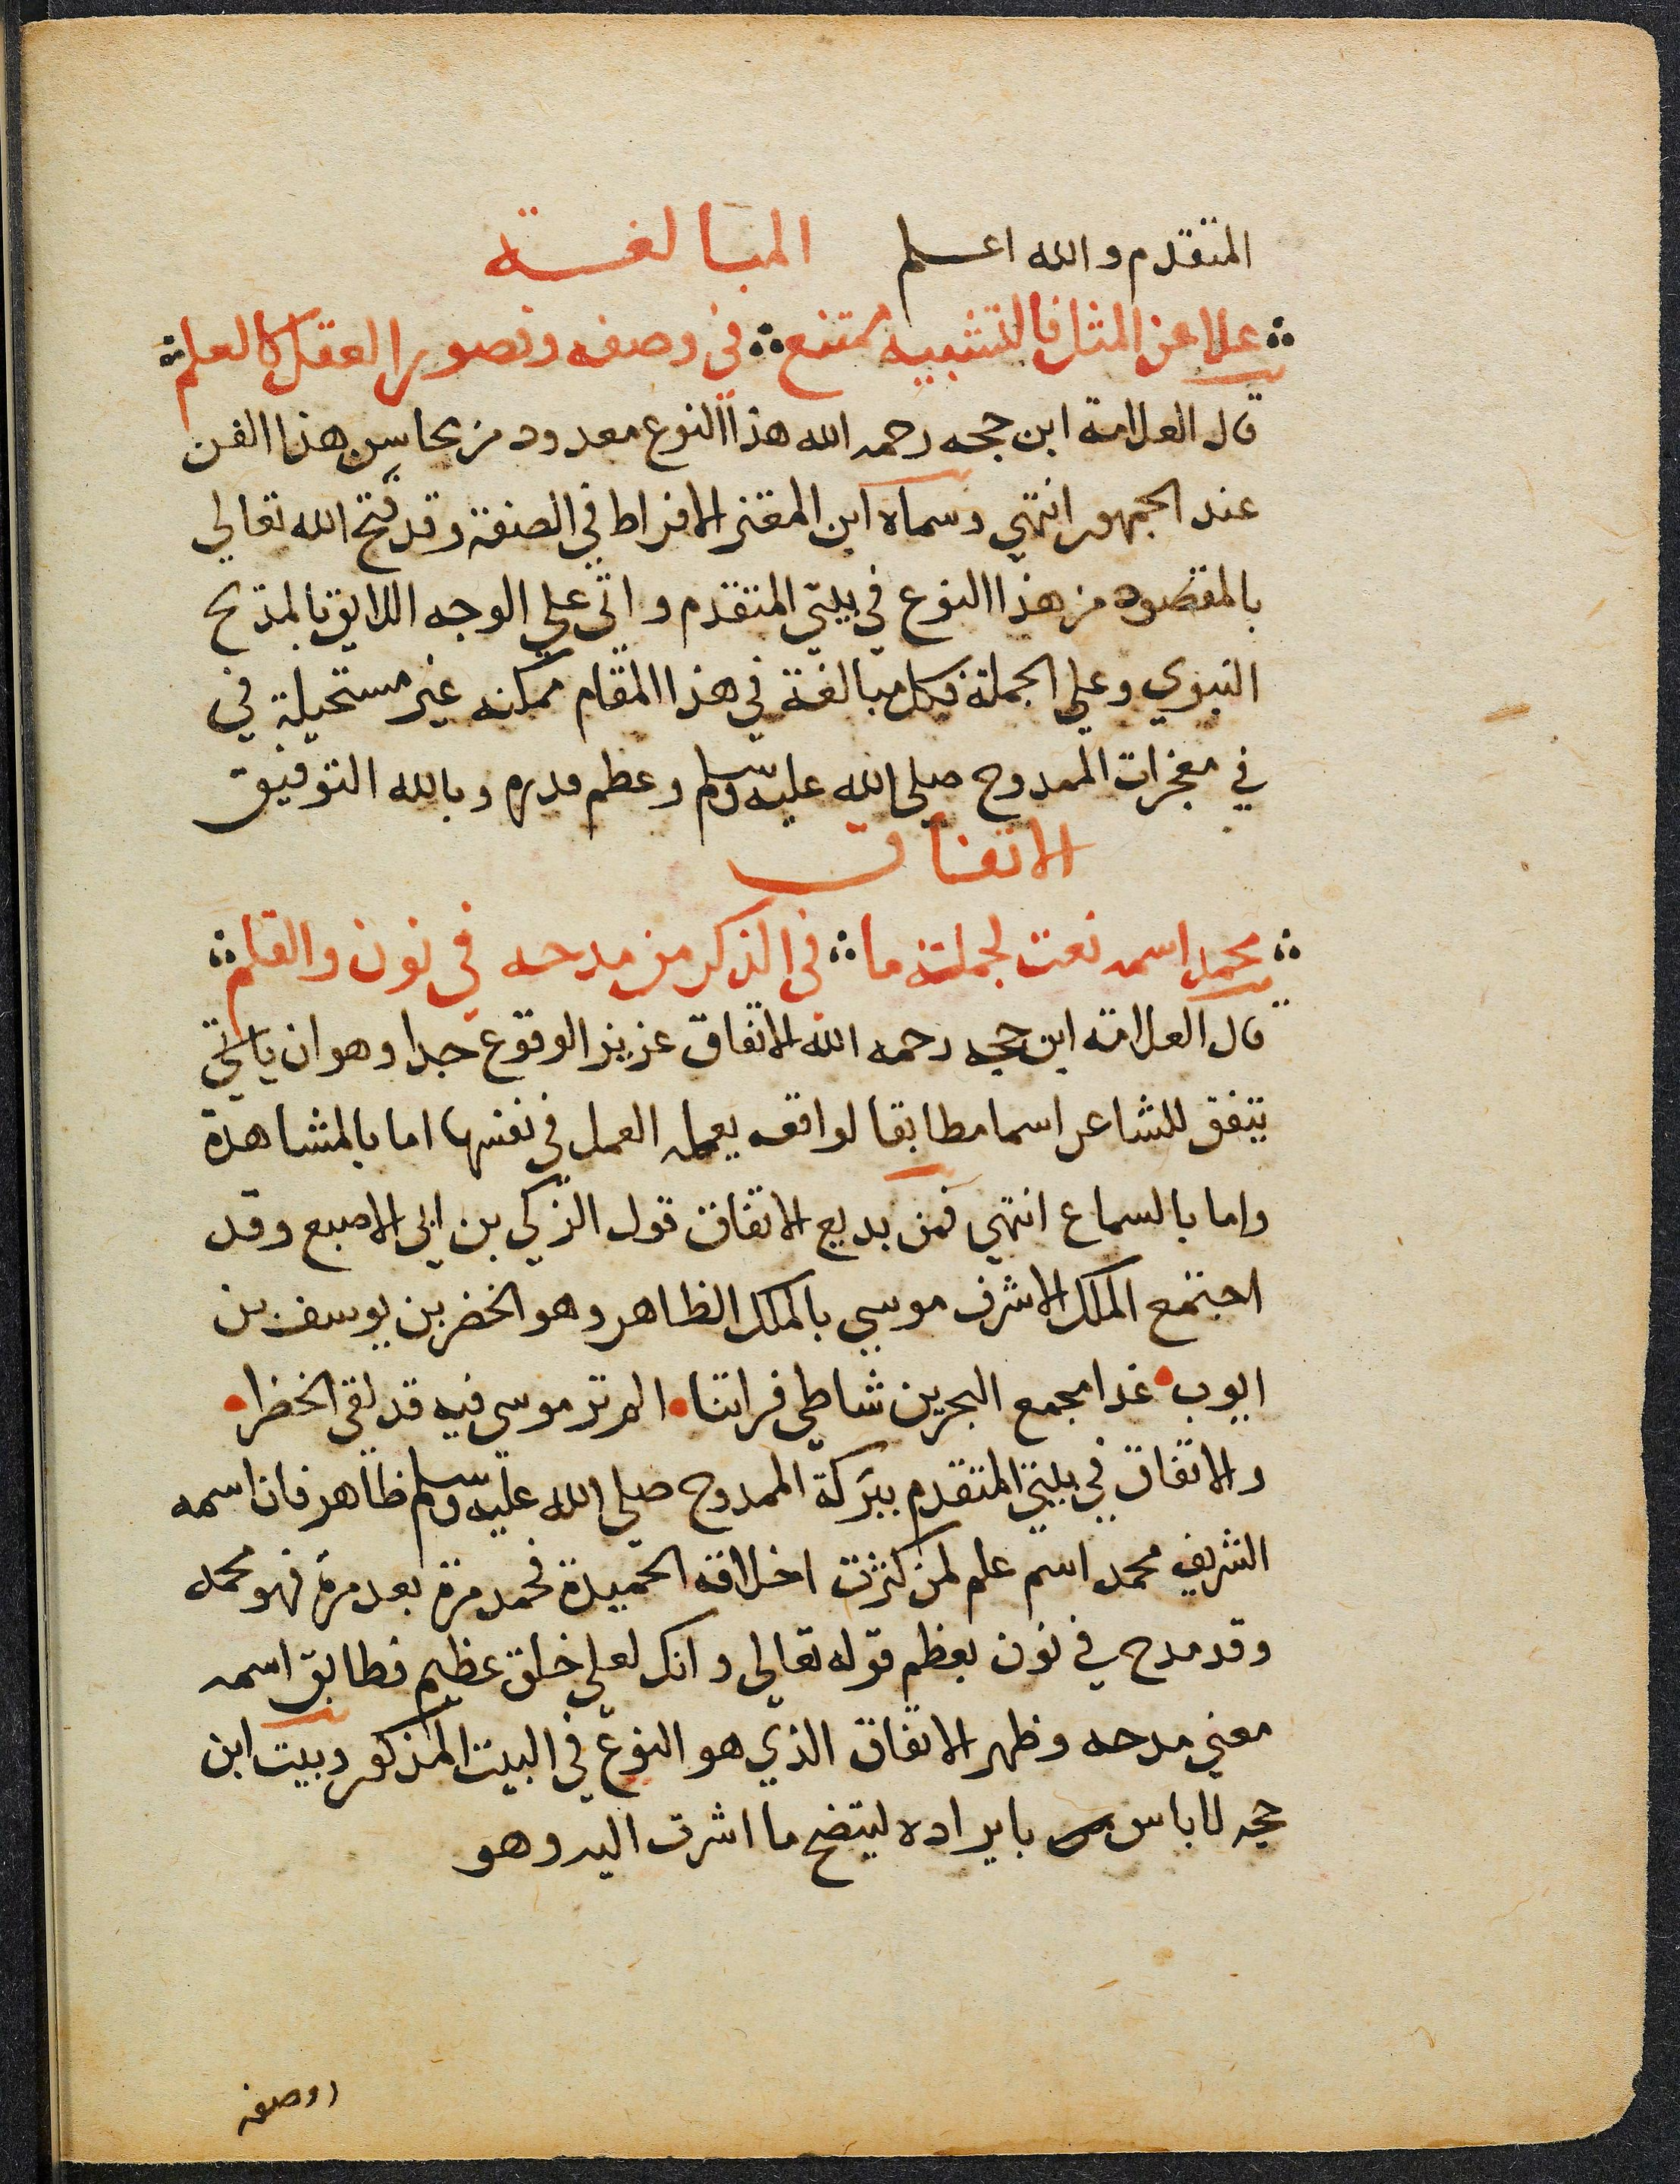 المتقدم والله اعلم المبالغة
علا عن المثل فالتشبيه ممتنع في وصفه وقصور العقل كالعلم
قال العلامة ابن حجه رحمه الله هذا النوع معدود من محاسن هذا الفن
عند الجمهور انتهي وسماه ابن المعتز الافراط في الصنعة وقد فتح الله تعالي
بالمقصود من هذا النوع في بيتي المتقدم واتي علي الوجه اللايق بالمدح
النبوي وعلي الجملة فكل مبالغة في هذا المقام ممكنه غير مستحيلة في
في معجزات الممدوح صلى الله عليه وسلم وعظم قدره وبالله التوفيق
الاتفاق
محمد اسمه نعت لجملة ما في الذكر من مدحه في نون والقلم
قال العلامة ابن حجه رحمه الله الاتفاق عزيز الوقوع جدا وهو ان ياتي
يتفق للشاعر اسما مطابقا لواقعه يعمله العمل في نفسها اما بالمشاهدة
واما بالسماع انتهي فمن بديع الاتفاق قول الزكي بن ابي الاصبع وقد
اجتمع الملك الاشرف موسي بالملك الظاهر وهو الخضر بن يوسف بن
ايوب غدا مجمع البحرين شاطي فراتنا الم تر موسي فيه قد لقي الخضرا
والاتفاق في بيتي المتقدم ببركة الممدوح صلي الله عليه وسلم ظاهر فان اسمه
الشريف محمد اسم علم لمن كثرت اخلاقه الحميدة فحمد مرة بعد مرة فهو محمد
وقد مدح في نون بعظم قوله تعالي وانك لعلي خلق عظيم فطابق اسمه
معني مدحه وظهر الاتفاق الذي هو النوع في البيت المذكور وبيت ابن
حجه لا باس بايراده ليتضح ما اشرت اليه وهو
اوصفه